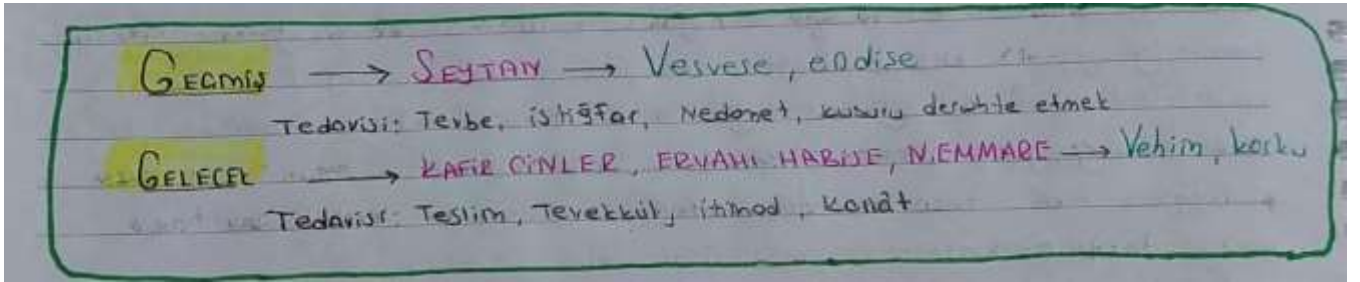 GEÇMİŞ → ŞEYTAN → Vesvese, endişe
Tedavisi: Tevbe, istiğfar, Nedamet, kusuru deruhte etmek
GELECEK → KAFİR CİNLER, ERVAHI HABİSE, N.EMMARE → Vehim, korku
Tedavisi: Teslim, Tevekkül, itimad, kanât